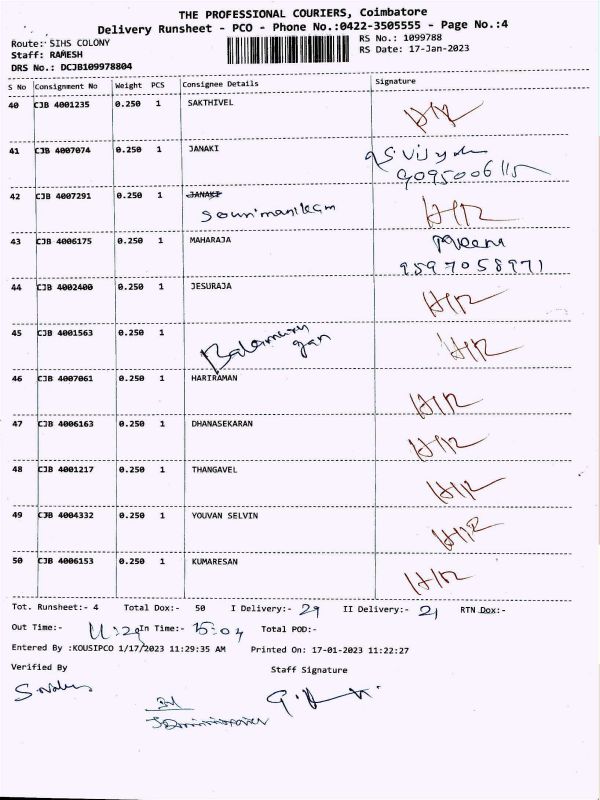 THE PROFESSIONAL COURIERS, Coimbatore
Delivery Runsheet - PCO - Phone No.:0422-3505555 - Page No.:4
Route: SIHS COLONY
RS No.: 1099788
Staff: RAMESH
RS Date: 17-Jan-2023
DRS No.: DCJB109978804
S No Consignment No Weight PCS Consignee Details Signature
40 CJB 4001235 0.250 1 SAKTHIVEL H/R
41 CJB 4007074 0.250 1 JANAKI
9095006115
42 CJB 4007291 0.250 1 JANAKI H/R
Sourimanikam
43 CJB 4006175 0.250 1 MAHARAJA
9597058971
44 CJB 4002400 0.250 1 JESURAJA H/R
45 CJB 4001563 0.250 1 Balamurugan H/R
46 CJB 4007061 0.250 1 HARIRAMAN H/R
47 CJB 4006163 0.250 1 DHANASEKARAN H/R
48 CJB 4001217 0.250 1 THANGAVEL H/R
49 CJB 4004332 0.250 1 YOUVAN SELVIN H/R
50 CJB 4006153 0.250 1 KUMARESAN H/R
Tot. Runsheet:- 4 Total Dox:- 50 I Delivery:- 29 II Delivery:- 21 RTN Dox:-
Out Time:- 11:29 In Time:- 15:04 Total POD:-
Entered By :KOUSIPCO 1/17/2023 11:29:35 AM Printed On: 17-01-2023 11:22:27
Verified By Staff Signature